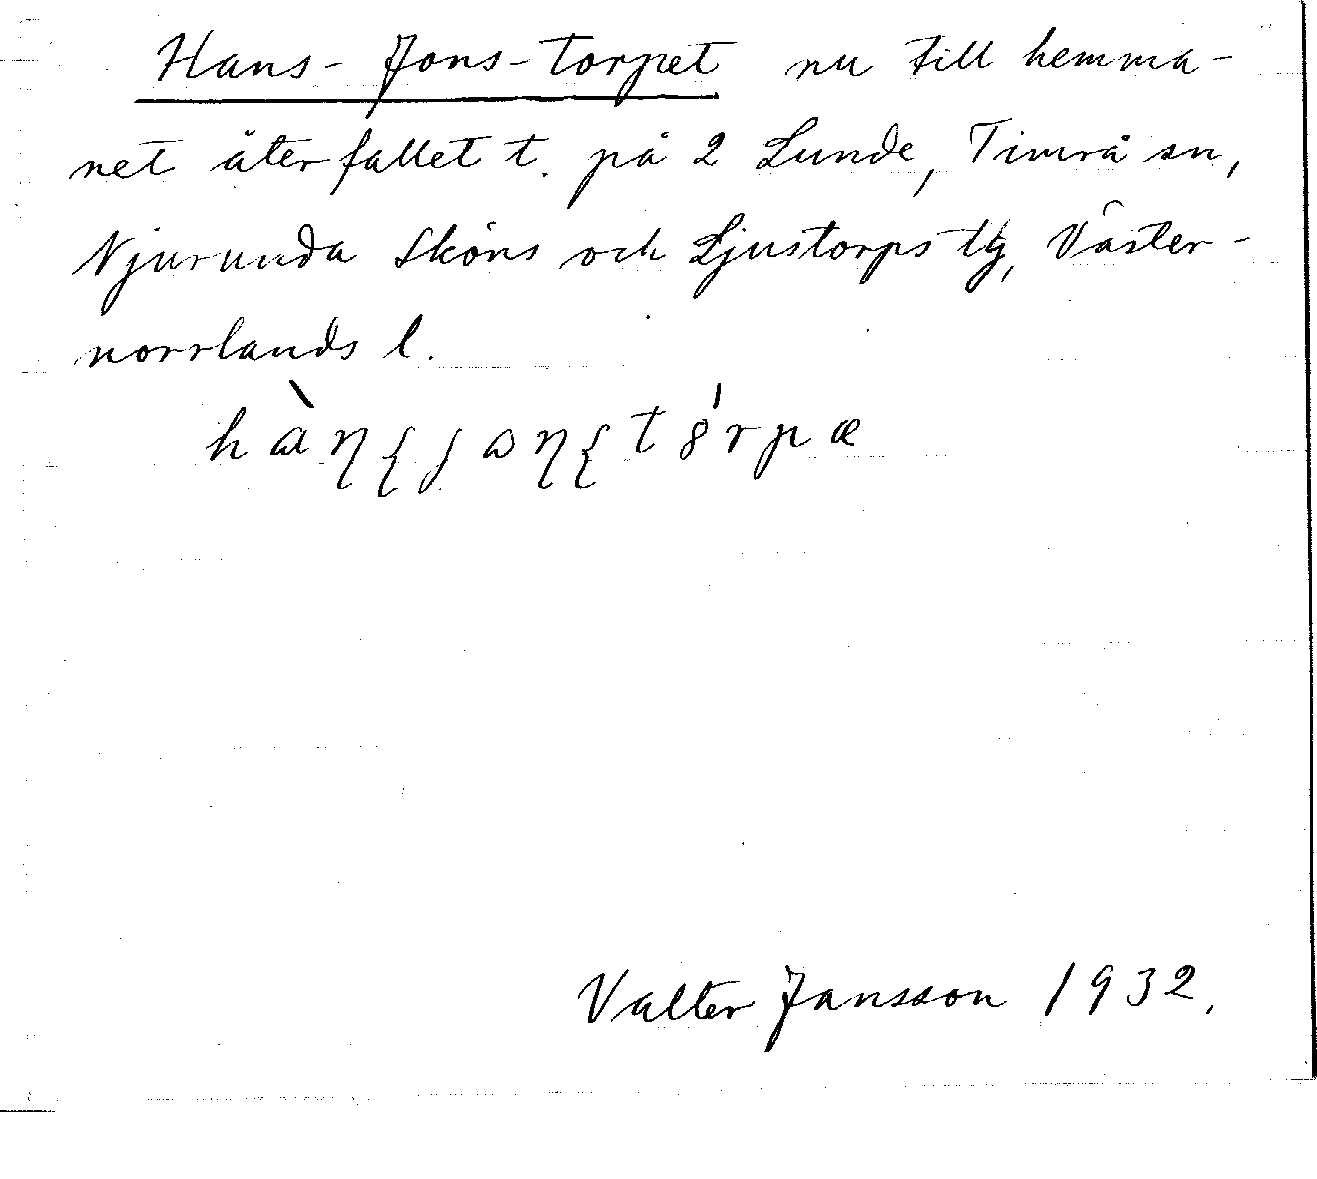 Hans-Jons-torpet nu till hemma-
net återfallet t. på 2 Lunde, Timrå sn,
Njurunda Sköns och Ljustorps tg, Väster-
norrlands l.
Valter Jansson 1932.